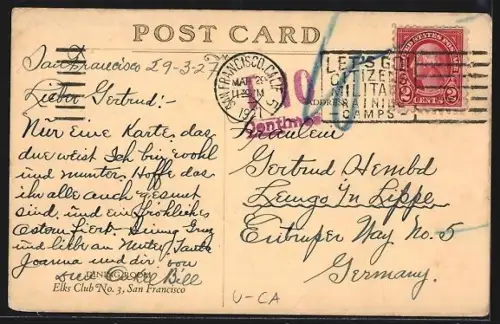 POST CARD
San Francisco 29-3-27
SAN FRANCISCO, CALIF.
MAR 29
11 PM
1927
5
LET'S GO!
CITIZENS
MILITARY
TRAINING
CAMPS
UNITED STATES POSTAGE
2 CENTS 2
T 10
Centimes
ADDRESS
Lieber Gertrud:-
Nur eine Karte das
du weist Ich bin wohl
und munter. Hoffe das
ihr alle auch gesunt
sind, und ein fröhliches
Ostern feiert. Grus
und liebe an Mutter, Tante
Joanna und dir von
Bill
Fräulein
Gertrud Hembd
Lemgo in Lippe
Entruper Way No. 5
Germany.
DINING ROOM
Elks Club No. 3, San Francisco
U-CA